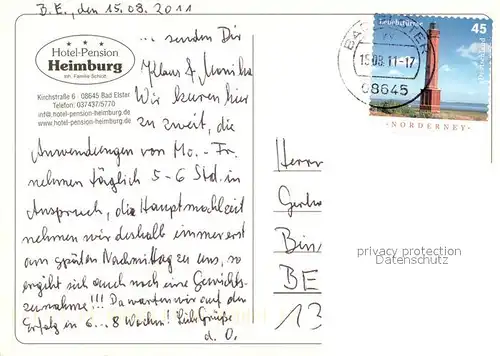 B.E., den 15.08.2011
... senden Dir
Klaus & Monika
Hotel-Pension
Heimburg
Inh. Familie Schott
Kirchstraße 6 · 08645 Bad Elster
Telefon: 037437/5770
info@.hotel-pension-heimburg.de
www.hotel-pension-heimburg.de
Wir kuren hier
zu zweit, die
Anwendungen von Mo.-Fr.
nehmen täglich 5-6 Std. in
Anspruch, die Hauptmahlzeit
nehmen wir deshalb immer erst
am späten Nachmittag zu uns, so
ergibt sich auch noch eine Gewichts-
zunahme!!! Da warten wir auf den
Erfolg in 6...8 Wochen! Liebe Grüße
d. O.
BAD ELSTER
15.08.11-17
08645
Leuchttürme
45
Deutschland
- NORDERNEY -
Herrn
Gerha
Bin
BE
13
privacy protection
Datenschutz